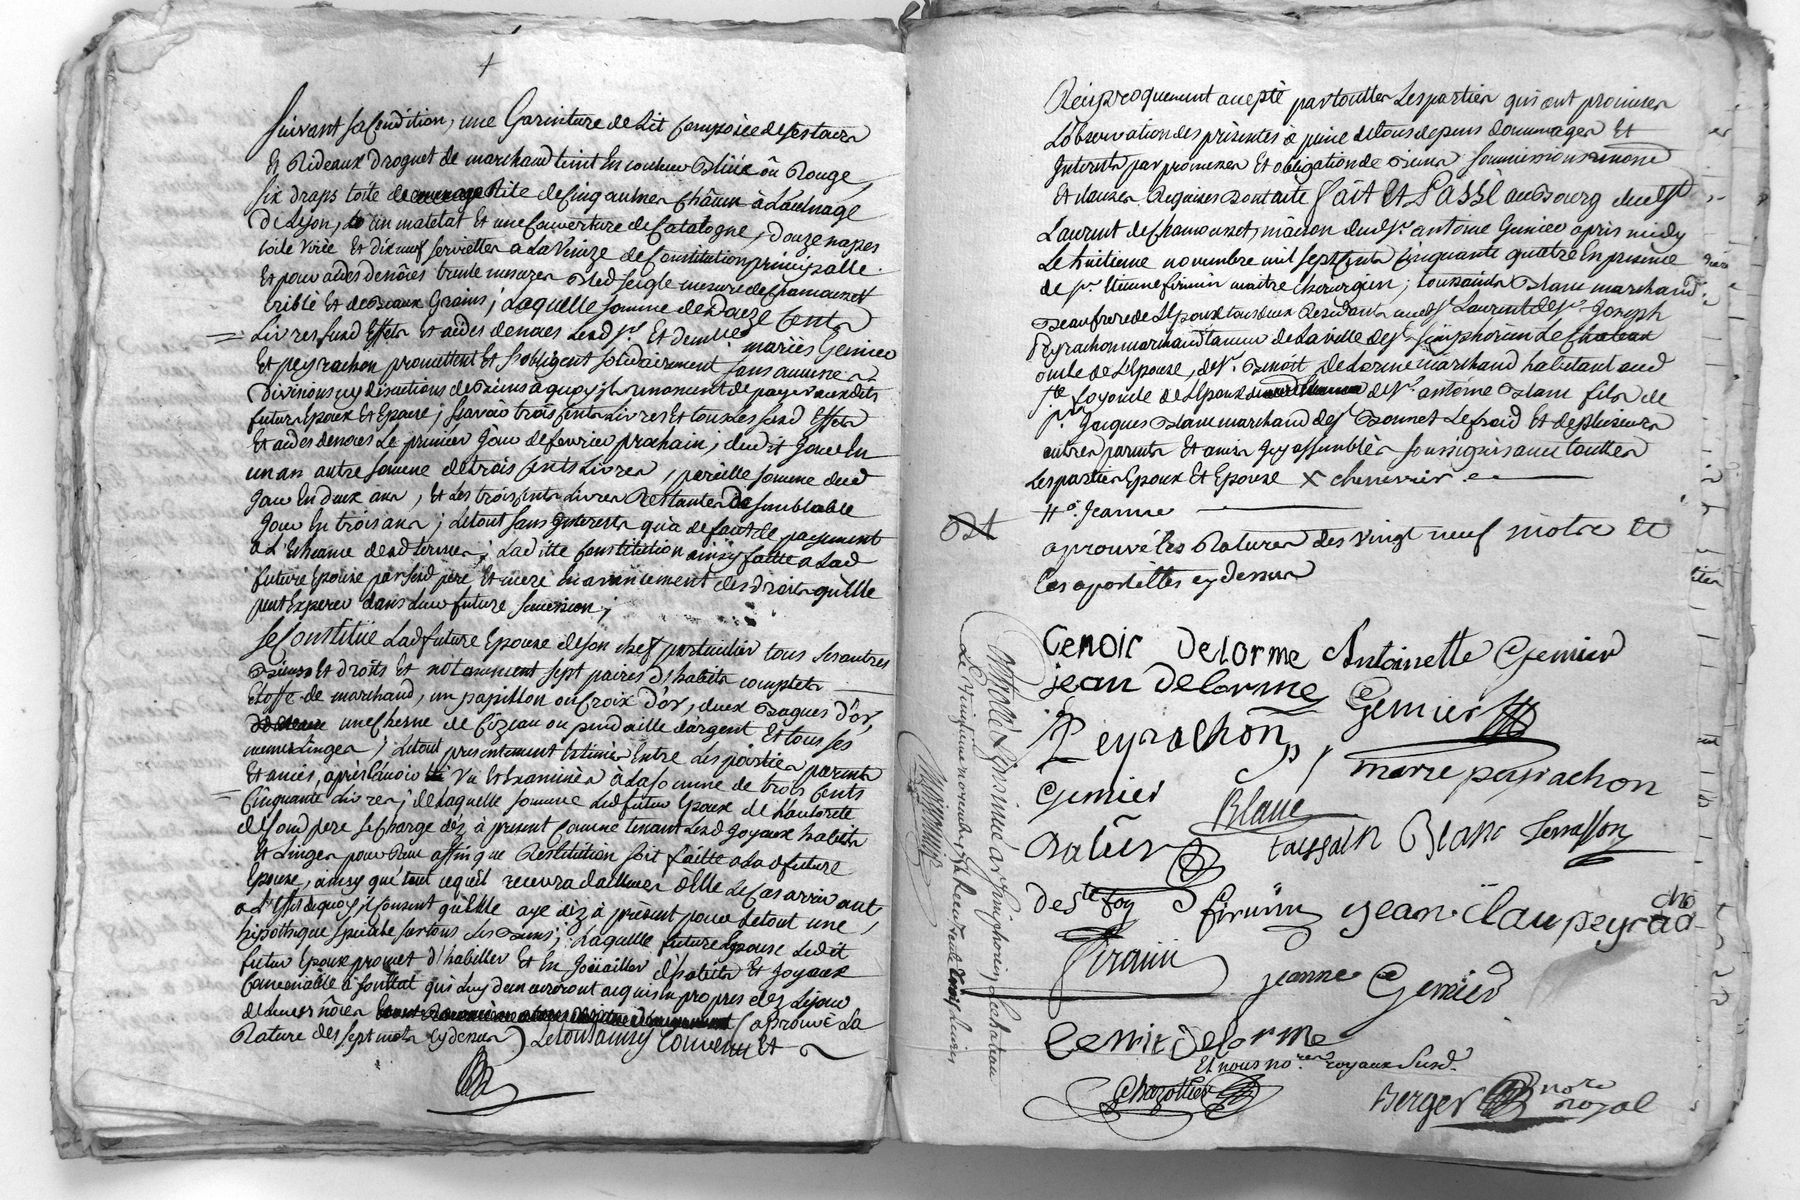 suivant sa Condition, une Garniture de Lit Composée de
Et Rideaux droguet de marchand teint En couleur Bleüe où Rouge,
six draps toile de Rite de Cinq aulnes Châcun à L'aulnage
De Lyon, un matelat Et une Couverture de Catalogne, douze napes
toile Et dix neuf serviettes a La Venize de Constitution principalle.
Et pour aides de nôces trente mesures Bled seigle mesure de Chamousset
criblé Et de Beaux Grains; Laquelle somme de douze Cents
Livres susd Effets Et aides de noces Lesd srs. Et demlle mariés Gemier
Et peyrachon promettent Et s'obligent solidairement sans aucune
Divisions ny discutions de Biens a quoy ils renoncent de payer auxdits
futurs Epoux Et Epouse; scavoir trois Cents Livres Et tous les susd Effets
Et aides de noces Le premier jour de fevrier prochain; dudit jour En
un an autre somme de trois Cents Livres, pareille somme dud
jour En deux ans, Et Les trois cents Livres Restantes de semblable
jour En trois ans; Le tout sans Interests qu'a defaut de payement
a L'Echeance desd termes; Laditte Constitution ainsy faitte a Lad
future Epouse par sesd pere Et mere En avancement des droits qu'Elle
peut Esperer dans Leur future succession;
se Constitüe Lad future Epouse de son chef particulier tous ses autres
Biens Et droits Et notament sept paires d'habits complets
Etoffe de marchand, un papillon ou Croix d'or, deux Bagues d'or,
une Cherne de Cizeau ou pendaille d'argent Et tous ses
menus Linges; Le tout presentement Estimés Entre Les parties parents
Et amies, après L'avoir Vû Et Examinés à La somme de trois Cents
Cinquante Livres; de Laquelle somme Led futur Epoux de L'autorité
de sond pere se Charge dès à présent Comme tenant Lesd joyaux habits
Et Linges pour affin que Restitution soit faitte a Lad future
Epouse, ainsy que tout ce qu'il recevra d'ailleurs d'Elle Le Cas arrivant,
a L'Effet de quoy il Consent qu'Elle aye dèz à présent pour Le tout une
hypotheque speciale sur tous ses Biens; Laquelle future Epouse Ledit
futur Epoux promet d'habiller Et En joüailler d'habits Et joyaux
Convenable à son Etat qui Luy demeureront acquis En propres dez Le jour
de Leurs nôces (aprouvé La
Rature des sept mots cy dessus) Le tout ainsy Convenu Et
Reciproquement accepté par touttes Les parties qui ont promises
L'observation des présentes à peine de tous depens dommages Et
Interests par promesses Et obligation de Biens soumissions renonc
Et clauses Requises Dont acte fait Et Passé au Bourg dudst
Laurent de Chamousset, maison dudsr. antoine Gemier après midy
Le huitieme novembre mil sept Cents Cinquante quatre En présence
de sr Etienne firmin maitre Chirurgien; toussaints Blanc marchand
Beaufrere de L'Epoux tous deux Residants aud st Laurent de sr. Joseph
Peyrachon marchand taneur de La ville de st simphorien Le Chateau
oncle de L'Epouse, de sr. Benoit de Lorme marchand habitant aud
ste foy oncle de L'Epoux de sr. antoine Blanc fils de
sr. Jacques Blanc marchand de st Bonnet Le froid Et de plusieurs
autres parents Et amis icy assemblés soussignés avec touttes
Les parties Epoux Et Epouse x
+ te. Jeanne
aprouvé Les Ratures des vingt neuf mots Et
Les apostilles cy dessus
Cenoit Delorme Antoinette Gemier
jean Delorme Gemier
Peyrachon
marie peyrachon
Gemier Blanc
Ratier taissain Blanc Terrasson
de ste foy firmin jean Clau peyrachō
Giraud
jeanne Gemier
Benoit Delorme
Et nous nores royaux susd.
Chazottier Berger nore
royal
Controllé Et Insinué à st simphorien Le chateau
Le Vingtieme novembre 1754 Receu